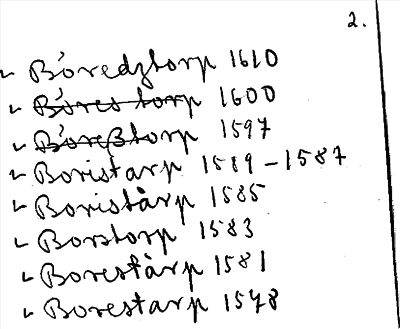 2.
Böredztorp 1610
Böres torp 1600
Böreßtorp 1597
Boristarp 1589-1587
Boristårp 1585
Borstorp 1583
Borestårp 1581
Borestarp 1578